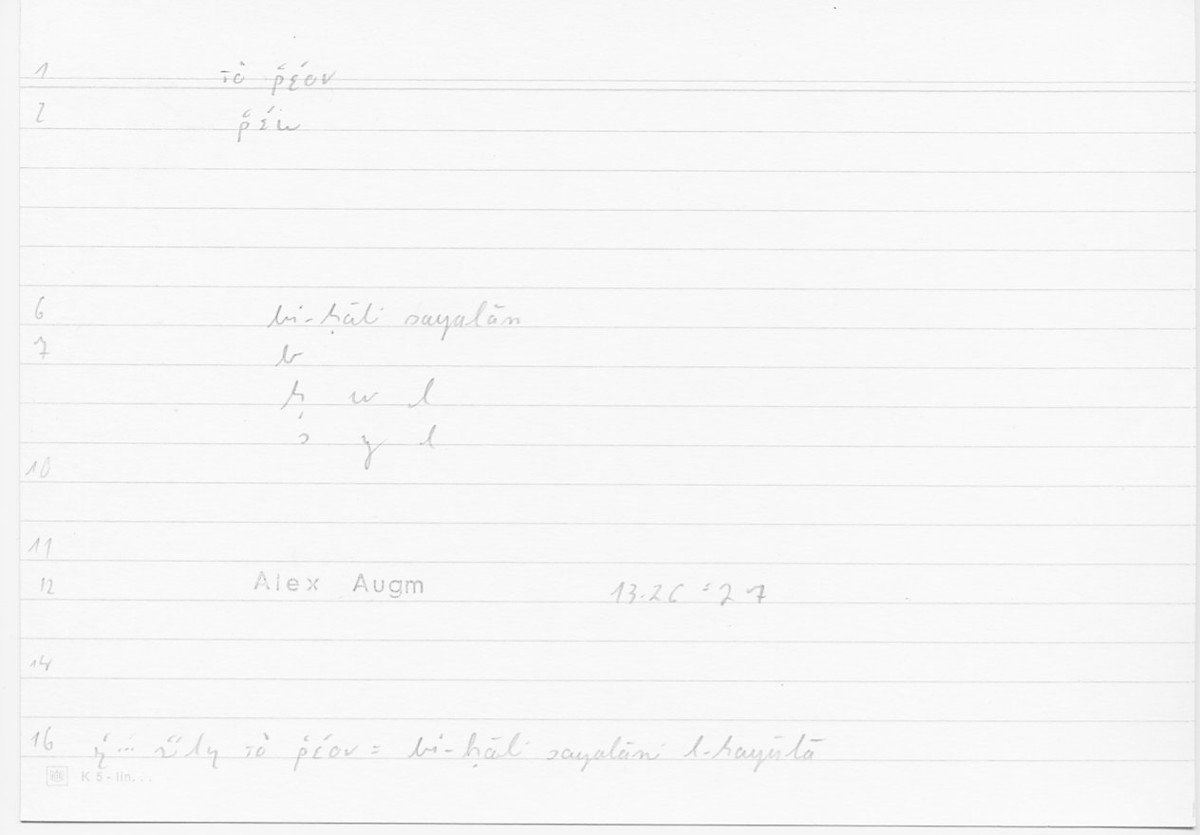 1 τὸ ῥέον
2 ῥέω
6 bi-ḥāli sayalān
7 b
ḥ w l
s y l
10
11
12 Alex Augm 13.26 = 27
14
16 ἡ ... ὕλη τὸ ῥέον = bi-ḥāli sayalāni l-hayūlā
K 5 - lin...